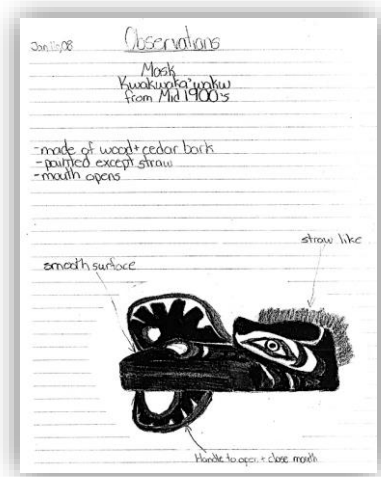 Observations
Mask
Kwakwaka'wakw
from Mid 1900's
-made of wood+cedar bark
-painted except straw
-mouth opens
straw like
smooth surface
Handle to open + close mouth